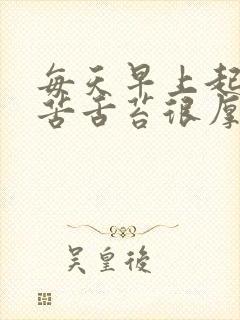 每天早上起
苦舌苔很厚
吴皇後